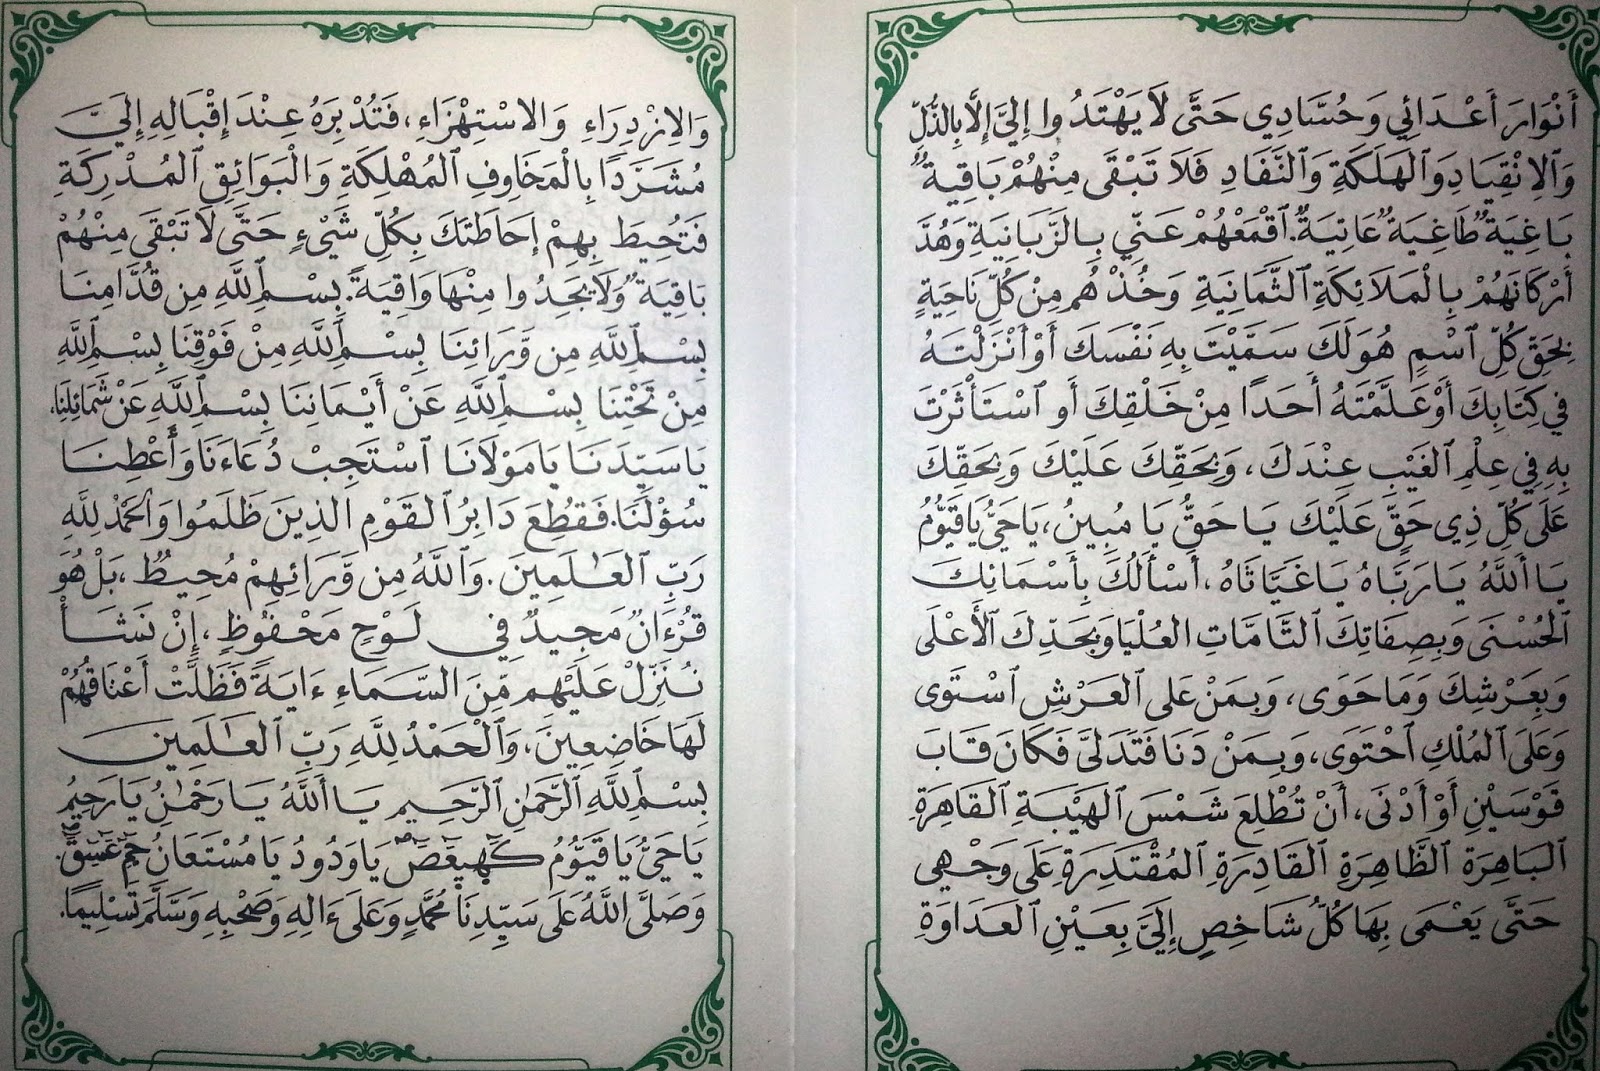 أَنْوَارَ أَعْدَائِي وَحُسَّادِي حَتَّى لَا يَهْتَدُوا إِلَيَّ إِلَّا بِالذُّلِّ
وَٱلِانْقِيَادِ وَٱلْهَلَكَةِ وَٱلنَّفَادِ فَلَا تَبْقَى مِنْهُمْ بَاقِيَةٌ
بَاغِيَةٌ طَاغِيَةٌ عَاتِيَةٌ. ٱقْمَعْهُمْ عَنِّي بِالزَّبَانِيَةِ وَهُدَّ
أَرْكَانَهُمْ بِالْمَلَائِكَةِ ٱلثَّمَانِيَةِ وَخُذْهُم مِنْ كُلِّ نَاحِيَةٍ
بِحَقِّ كُلِّ ٱسْمٍ هُوَ لَكَ سَمَّيْتَ بِهِ نَفْسَكَ أَوْ أَنْزَلْتَهُ
فِي كِتَابِكَ أَوْ عَلَّمْتَهُ أَحَدًا مِنْ خَلْقِكَ أَوِ ٱسْتَأْثَرْتَ
بِهِ فِي عِلْمِ ٱلْغَيْبِ عِنْدَكَ، وَبِحَقِّكَ عَلَيْكَ وَبِحَقِّكَ
عَلَى كُلِّ ذِي حَقٍّ عَلَيْكَ يَا حَقُّ يَا مُبِينُ، يَا حَيُّ يَا قَيُّومُ
يَا أَللَّهُ يَا رَبَّاهُ يَا غَيَّاثَاهُ، أَسْأَلُكَ بِأَسْمَائِكَ
ٱلْحُسْنَى وَبِصِفَاتِكَ ٱلتَّامَّاتِ ٱلْعُلْيَا وَبِجَدِّكَ ٱلْأَعْلَى
وَبِعَرْشِكَ وَمَا حَوَى، وَبِمَنْ عَلَى ٱلْعَرْشِ ٱسْتَوَى
وَعَلَى ٱلْمُلْكِ ٱحْتَوَى، وَبِمَنْ دَنَا فَتَدَلَّى فَكَانَ قَابَ
قَوْسَيْنِ أَوْ أَدْنَى، أَنْ تُطْلِعَ شَمْسَ ٱلْهَيْبَةِ ٱلْقَاهِرَةِ
ٱلْبَاهِرَةِ ٱلظَّاهِرَةِ ٱلْقَادِرَةِ ٱلْمُقْتَدِرَةِ عَلَى وَجْهِي
حَتَّى يَعْمَى بِهَا كُلُّ شَاخِصٍ إِلَيَّ بِعَيْنِ ٱلْعَدَاوَةِ
وَالِازْدِرَاءِ وَالِاسْتِهْزَاءِ، فَتُدْبِرَهُ عِنْدَ إِقْبَالِهِ إِلَيَّ
مُشَرَّدًا بِالْمَخَاوِفِ ٱلْمُهْلِكَةِ وَالْبَوَائِقِ ٱلْمُدْرِكَةِ
فَتُحِيطَ بِهِمْ إِحَاطَتَكَ بِكُلِّ شَيْءٍ حَتَّى لَا تَبْقَى مِنْهُمْ
بَاقِيَةٌ وَلَا يَجِدُوا مِنْهَا وَاقِيَةً. بِسْمِ ٱللَّهِ مِن قُدَّامِنَا
بِسْمِ ٱللَّهِ مِن وَّرَائِنَا بِسْمِ ٱللَّهِ مِنْ فَوْقِنَا بِسْمِ ٱللَّهِ
مِنْ تَحْتِنَا بِسْمِ ٱللَّهِ عَنْ أَيْمَانِنَا بِسْمِ ٱللَّهِ عَنْ شَمَائِلِنَا.
يَا سَيِّدَنَا يَا مَوْلَانَا ٱسْتَجِبْ دُعَاءَنَا وَأَعْطِنَا
سُؤْلَنَا. فَقُطِعَ دَابِرُ ٱلْقَوْمِ ٱلَّذِينَ ظَلَمُوا وَٱلْحَمْدُ لِلَّهِ
رَبِّ ٱلْعَـٰلَمِينَ. وَٱللَّهُ مِن وَّرَائِهِمْ مُحِيطٌ، بَلْ هُوَ
قُرْءَانٌ مَجِيدٌ فِي لَوْحٍ مَحْفُوظٍ، إِنْ نَشَأْ
نُنَزِّلْ عَلَيْهِم مِّنَ السَّمَاءِ ءَايَةً فَظَلَّتْ أَعْنَاقُهُمْ
لَهَا خَاضِعِينَ، وَٱلْحَمْدُ لِلَّهِ رَبِّ ٱلْعَـٰلَمِينَ
بِسْمِ ٱللَّهِ ٱلرَّحْمَٰنِ ٱلرَّحِيمِ يَا أَللَّهُ يَا رَحْمَٰنُ يَا رَحِيمُ
يَا حَيُّ يَا قَيُّومُ كٓهيعٓصٓ يَا وَدُودُ يَا مُسْتَعَانُ حمٓ عٓسٓقٓ.
وَصَلَّى اللَّهُ عَلَى سَيِّدِنَا مُحَمَّدٍ وَعَلَى ءَالِهِ وَصَحْبِهِ وَسَلَّمَ تَسْلِيمًا.